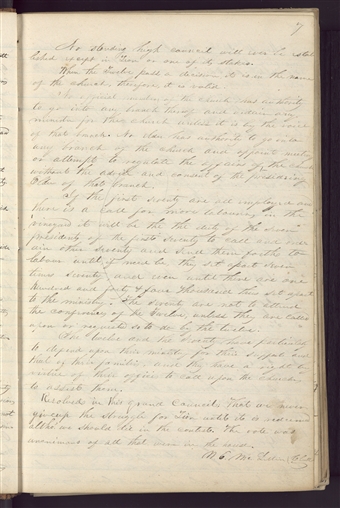 7
No standing high council will ever be estab
lished except in Zion or one of its stakes.
When the Twelve pass a decision it is in the name
of the church, therefore it is valid.
No official member of the church has authority
to go into any branch thereof and ordain any
minister for that church unless it is by the voice
of that branch. No Elder has authority to go into
any branch of the church and appoint meetings
or attempt to regulate the affairs of the church
without the advice and consent of the presiding
Elder of that branch.
If the first seventy are all employed and
there is a call for more laborers in the
vineyard it will be the duty of the seven
presidents of the first seventy to call and ordain
other seventy and send them forth to
labour until if need be they set apart seven
times seventy and even until there are one
hundred and forty & four thousand thus set apart
to the ministry. The seventy are not to attend
the conferences of the Twelve, unless they are called
upon or requested so to do by the twelve.
The twelve and the seventy have particularly
to depend upon their ministry for their support and
that of their families, and they have a right by
virtue of their offices to call upon the churches
to assist them.
Resolved in this grand Council, That we never
give up the struggle for Zion until it is redeemed
altho we should die in the contest. The vote was
unanimous of all that were in the land.
W. E. McLellin, Clerk